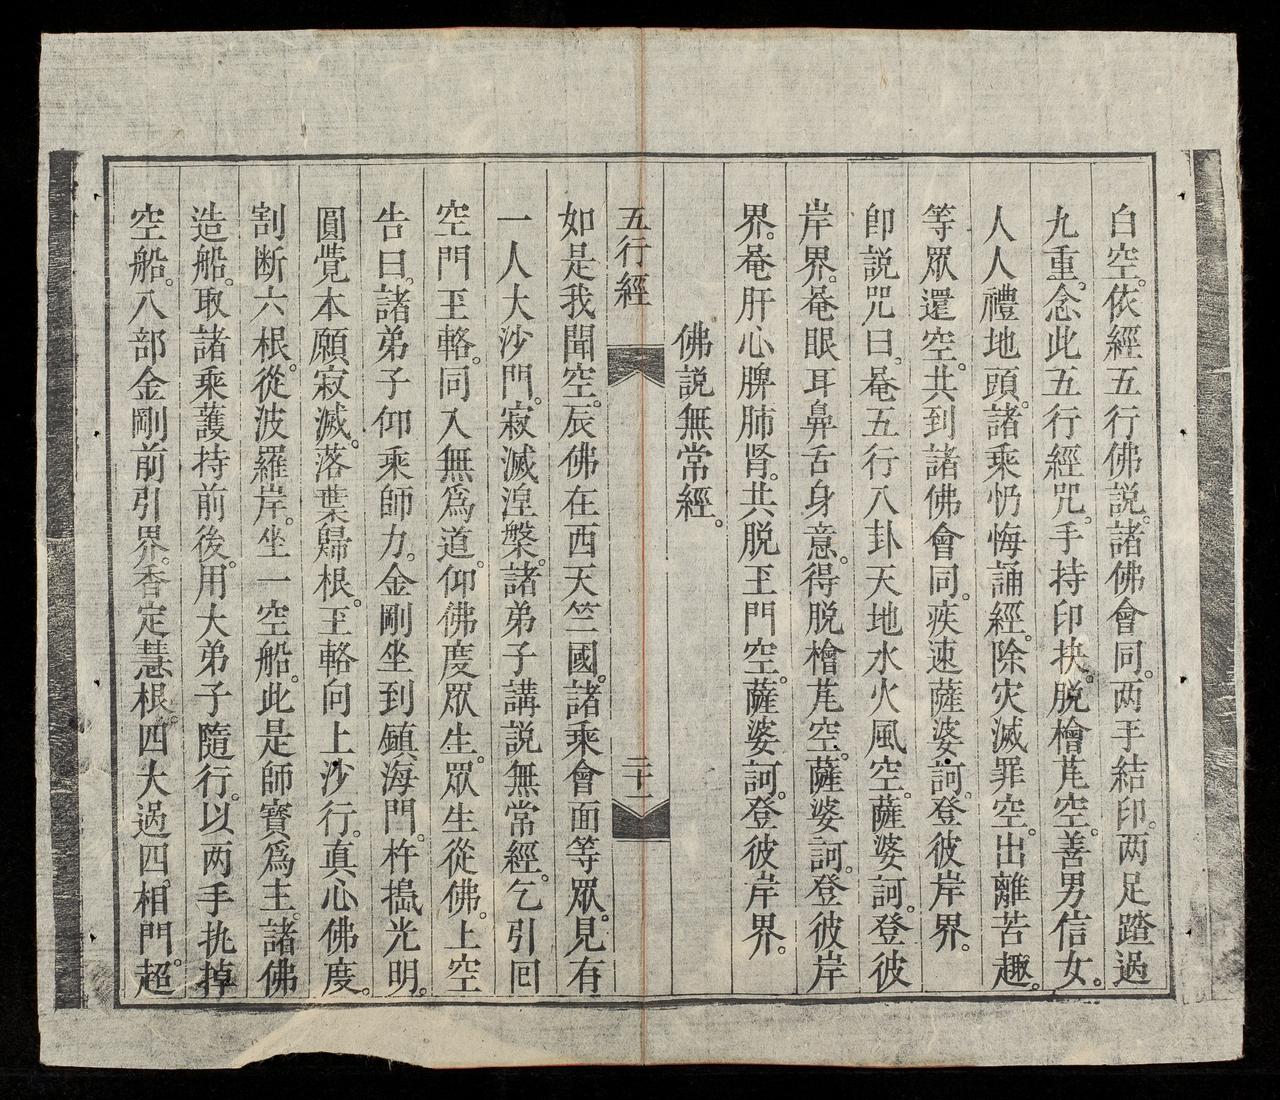 白空。依經五行佛説。諸佛會同。两手結印。两足踏過
九重。念此五行經咒。手持印抉。脱檜芘空。善男信女。
人人禮地頭。諸乘忏悔誦經。除灾滅罪空。出離苦趣。
等眾還空。共到諸佛會同。疾速薩婆訶。登彼岸界。
卽説咒曰。菴五行八卦天地水火風空。薩婆訶。登彼
岸界。菴眼耳鼻舌身意。得脱檜芘空。薩婆訶。登彼岸
界。菴肝心脾肺肾。共脱玊門空。薩婆訶。登彼岸界。
佛説無常經。
五行經
二十一
如是我聞空。辰佛在西天竺國。諸乘會面等眾。見有
一人大沙門。寂滅湼槃。諸弟子講説無常經。乞引囘
空門玊輅。同入無爲道。仰佛度眾生。眾生從佛。上空
告曰。諸弟子仰乘師力。金剛坐到鎮海門。杵搗光明。
圓覺本願寂滅。落葉歸根。玊輅向上沙行。真心佛度。
割断六根。從波羅岸。坐一空船。此是師寶爲主。諸佛
造船。取諸乘護持前後。用大弟子隨行。以两手挑掉
空船。八部金剛前引界。香定慧根。四大過四。相門。超